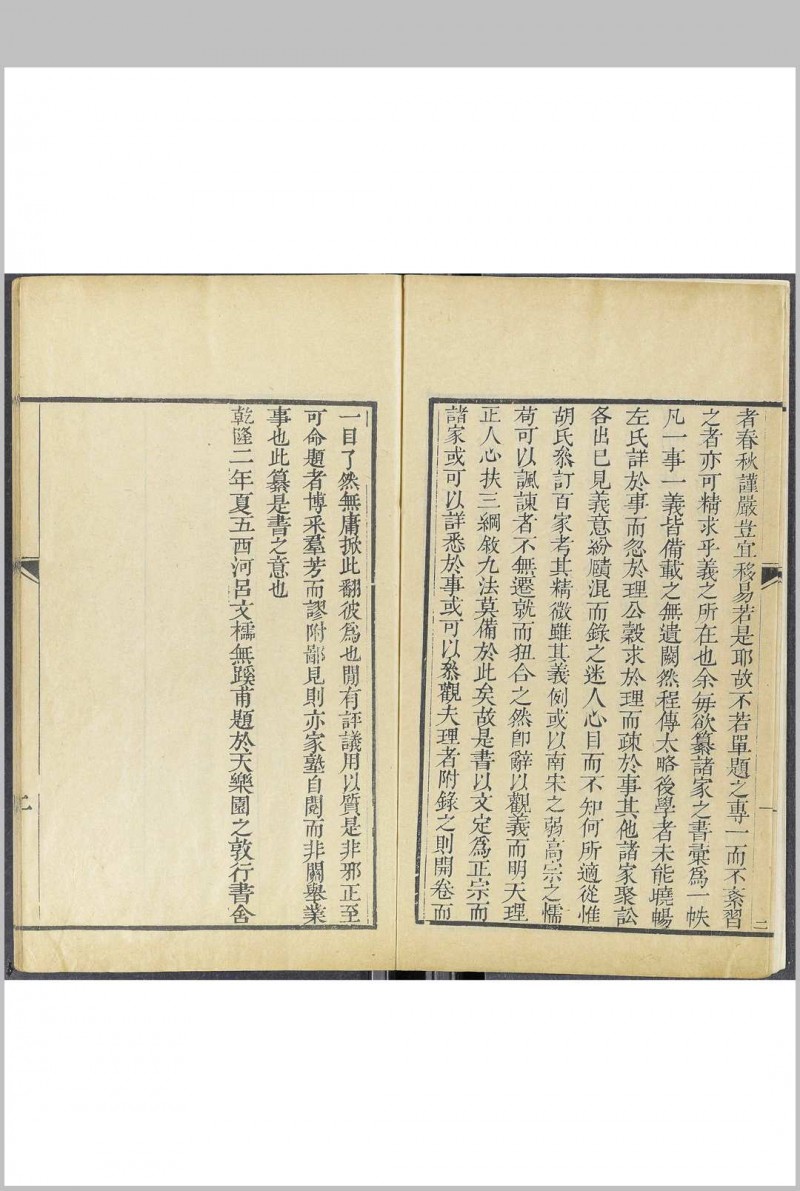 者春秋謹嚴豈宜移易若是耶故不若單題之專一而不紊習
之者亦可精求乎義之所在也余每欲纂諸家之書彙爲一帙
凡一事一義皆備載之無遺闕然程傳太略後學者未能曉暢
左氏詳於事而忽於理公穀求於理而疎於事其他諸家聚訟
各出已見義意紛賾混而錄之迷人心目而不知何所適從惟
胡氏叅訂百家考其精微雖其義例或以南宋之弱高宗之懦
苟可以諷諫者不無遷就而扭合之然卽辭以觀義而明天理
正人心扶三綱敘九法莫備於此矣故是書以文定爲正宗而
諸家或可以詳悉於事或可以叅觀夫理者附錄之則開卷而
二
一目了然無庸掀此翻彼爲也閒有評議用以質是非邪正至
可命題者博采羣芳而謬附鄙見則亦家塾自閱而非關舉業
事也此纂是書之意也
乾隆二年夏五西河呂文櫺無蹊甫題於天樂園之敦行書舍